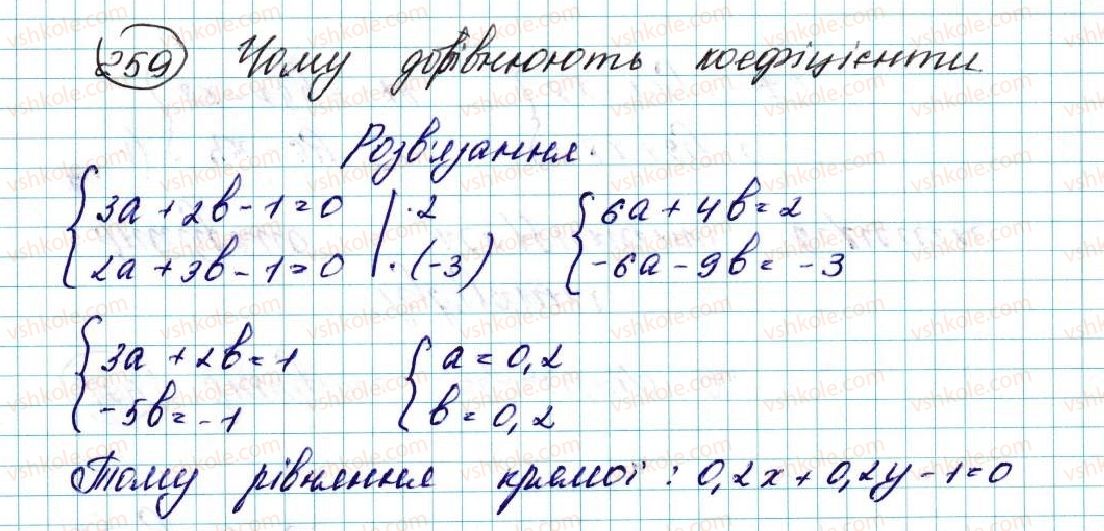 259 Чому дорівнюють коефіцієнти
Розв'язання.
{3a + 2b - 1 = 0 | · 2 {6a + 4b = 2
{2a + 3b - 1 = 0 | · (-3) {-6a - 9b = -3
{3a + 2b = 1 {a = 0,2
{-5b = -1 {b = 0,2
Тому рівняння прямої : 0,2x + 0,2y - 1 = 0
vshkole.com